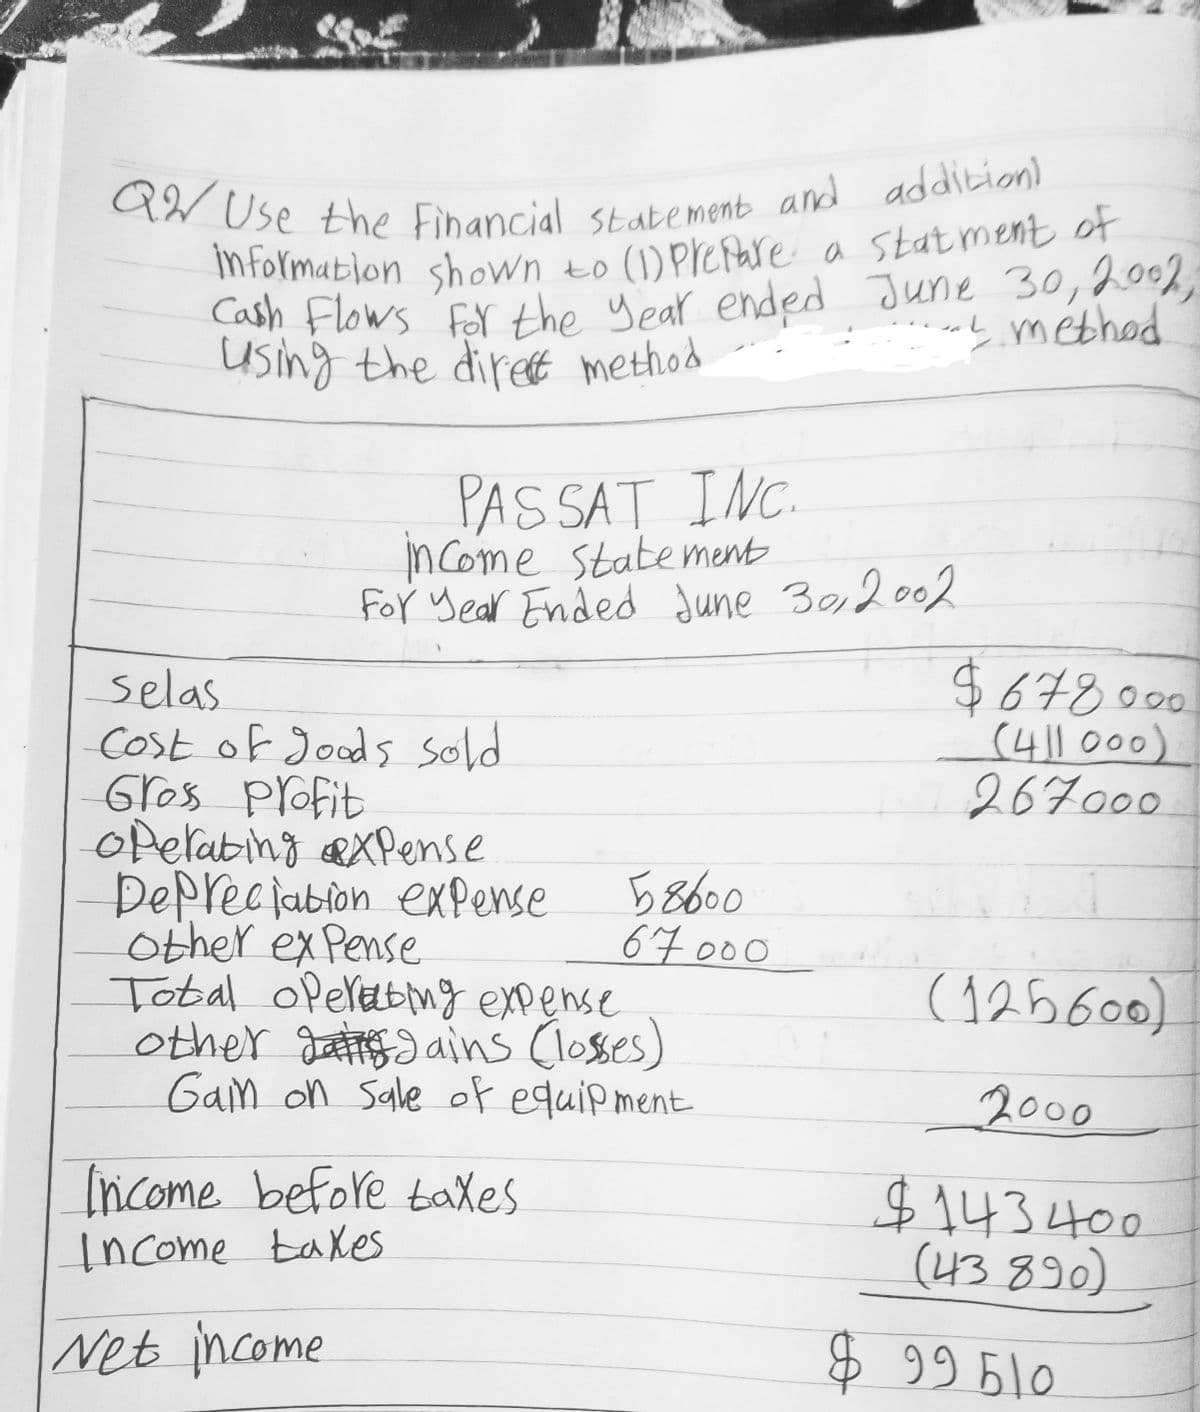 Q2/ Use the Financial statement and addition)
information shown to (1) Prepare a statment of
Cash Flows For the year ended June 30, 2002,
using the direct method method
PASSAT INC.
income statement
For year Ended June 30, 2002
selas $ 678 000
Cost of goods sold (411 000)
Gros profit 267000
operating expense
Depreciation expense 58600
other expense 67 000
Total operating expense (125 600)
other gains (losses)
Gain on sale of equipment 2000
Income before taxes $ 143 400
Income taxes (43 890)
Net income $ 99 510